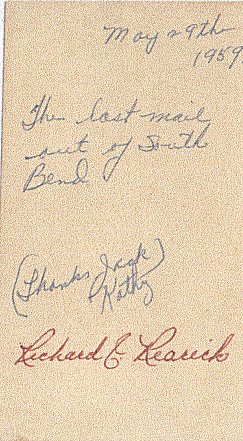 May 29th
1959
The last mail
out of South
Bend
(Thanks Jack)
Kathy
Richard C Rearick